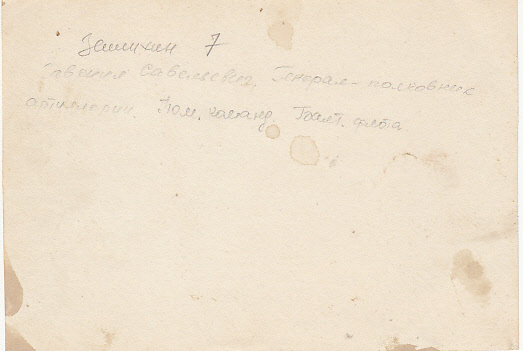 Зашихин 7
Гавриил Савельевич. Генерал-полковник
артиллерии. Пом. команд. Балт. флота